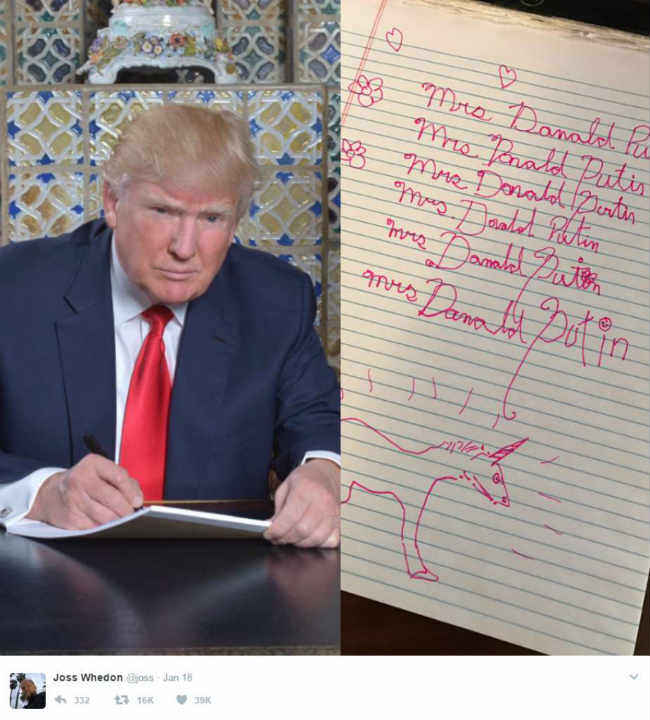 Mrs Donald Pu
Mrs Donald Putin
Mrs Donald Putin
Mrs Donald Putin
Mrs Donald Putin
Mrs Donald Putin
Joss Whedon @joss · Jan 18
332 16K 39K